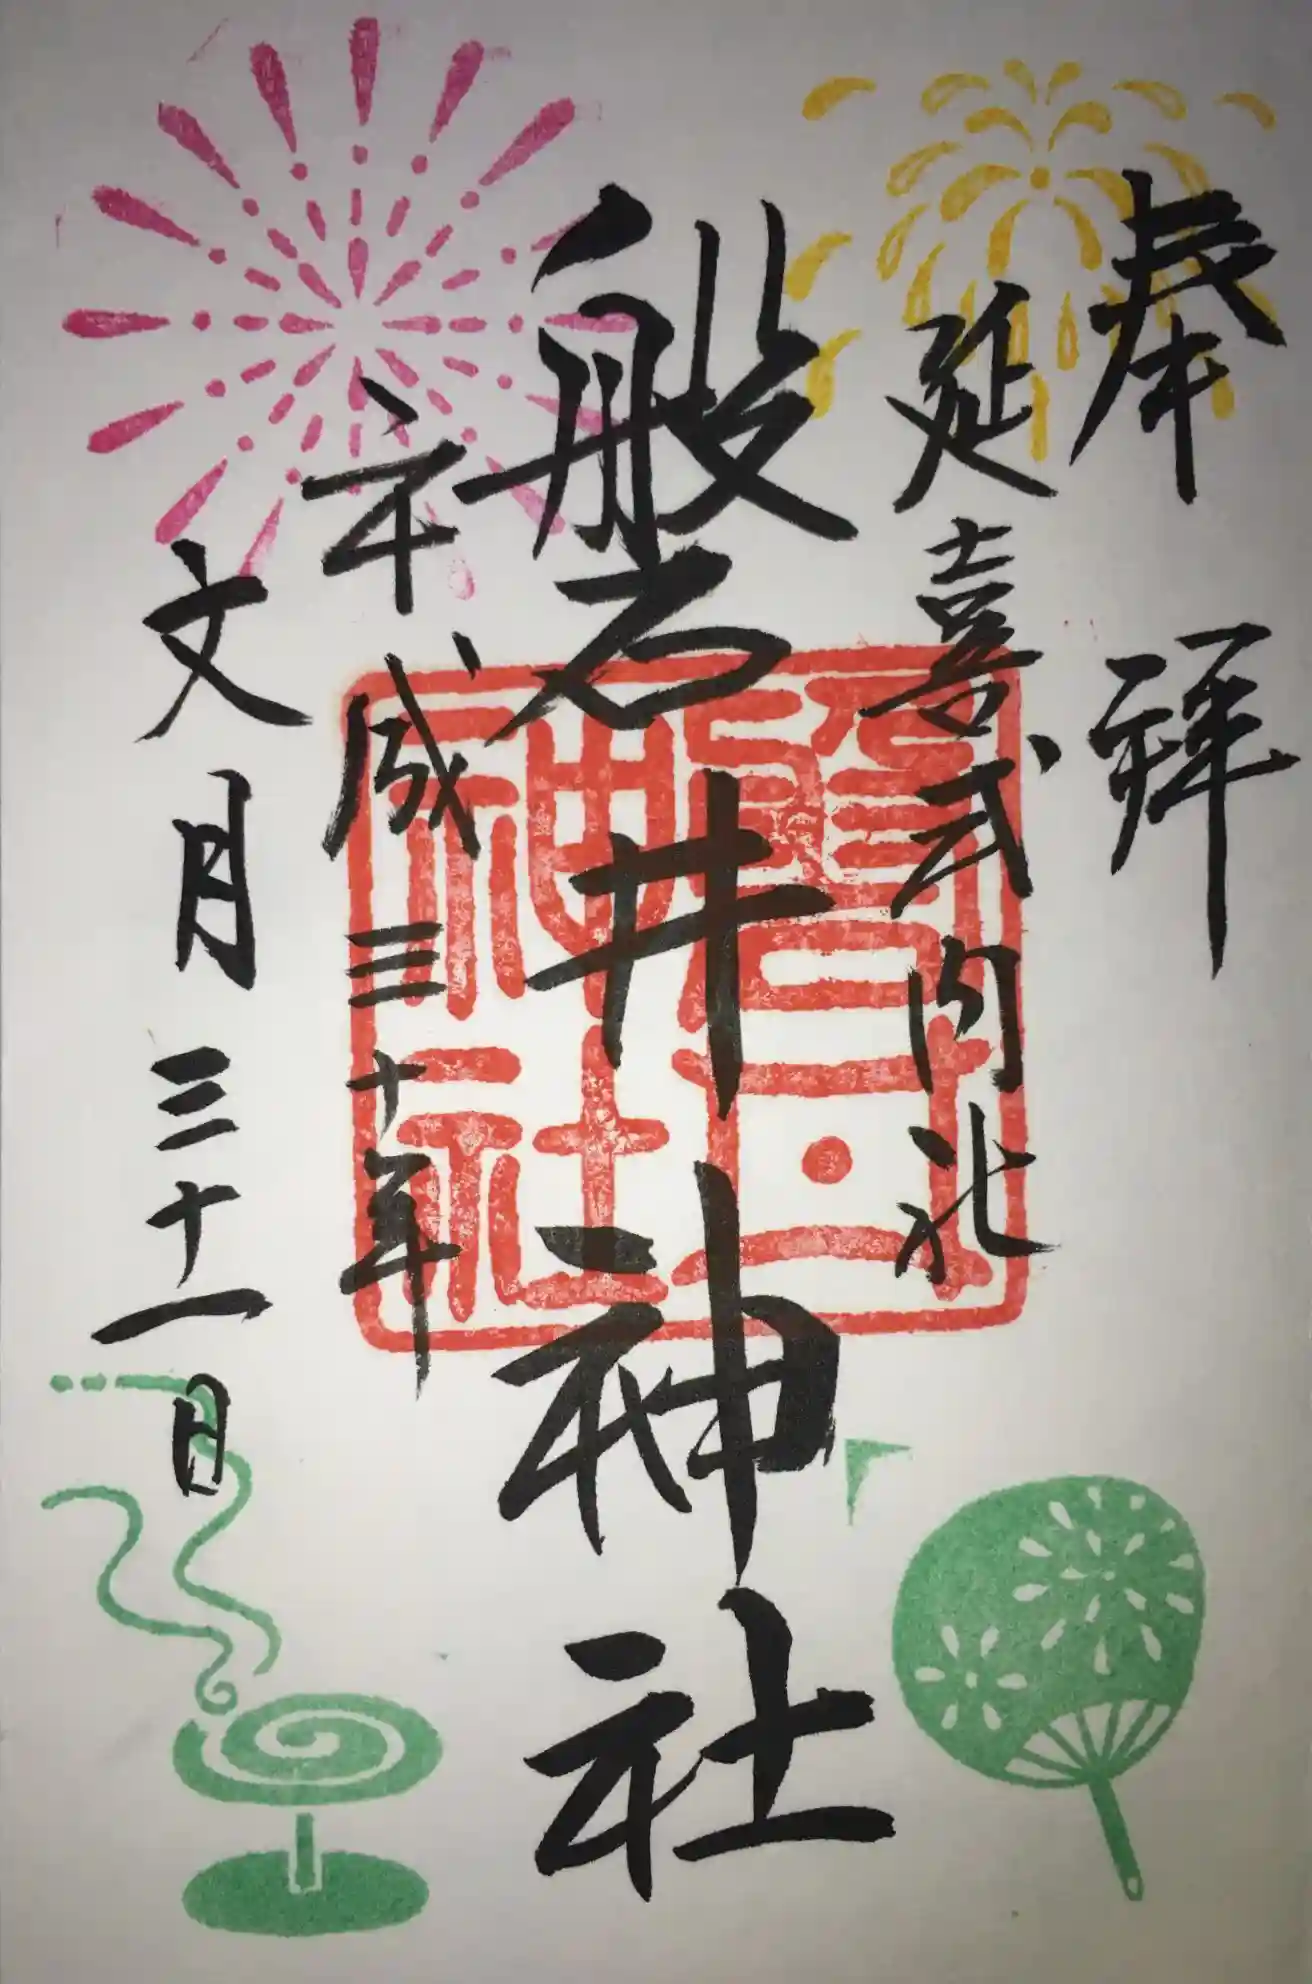 奉拝
延喜式内社
磐井神社
平成三十年
文月三十一日
磐井
神社